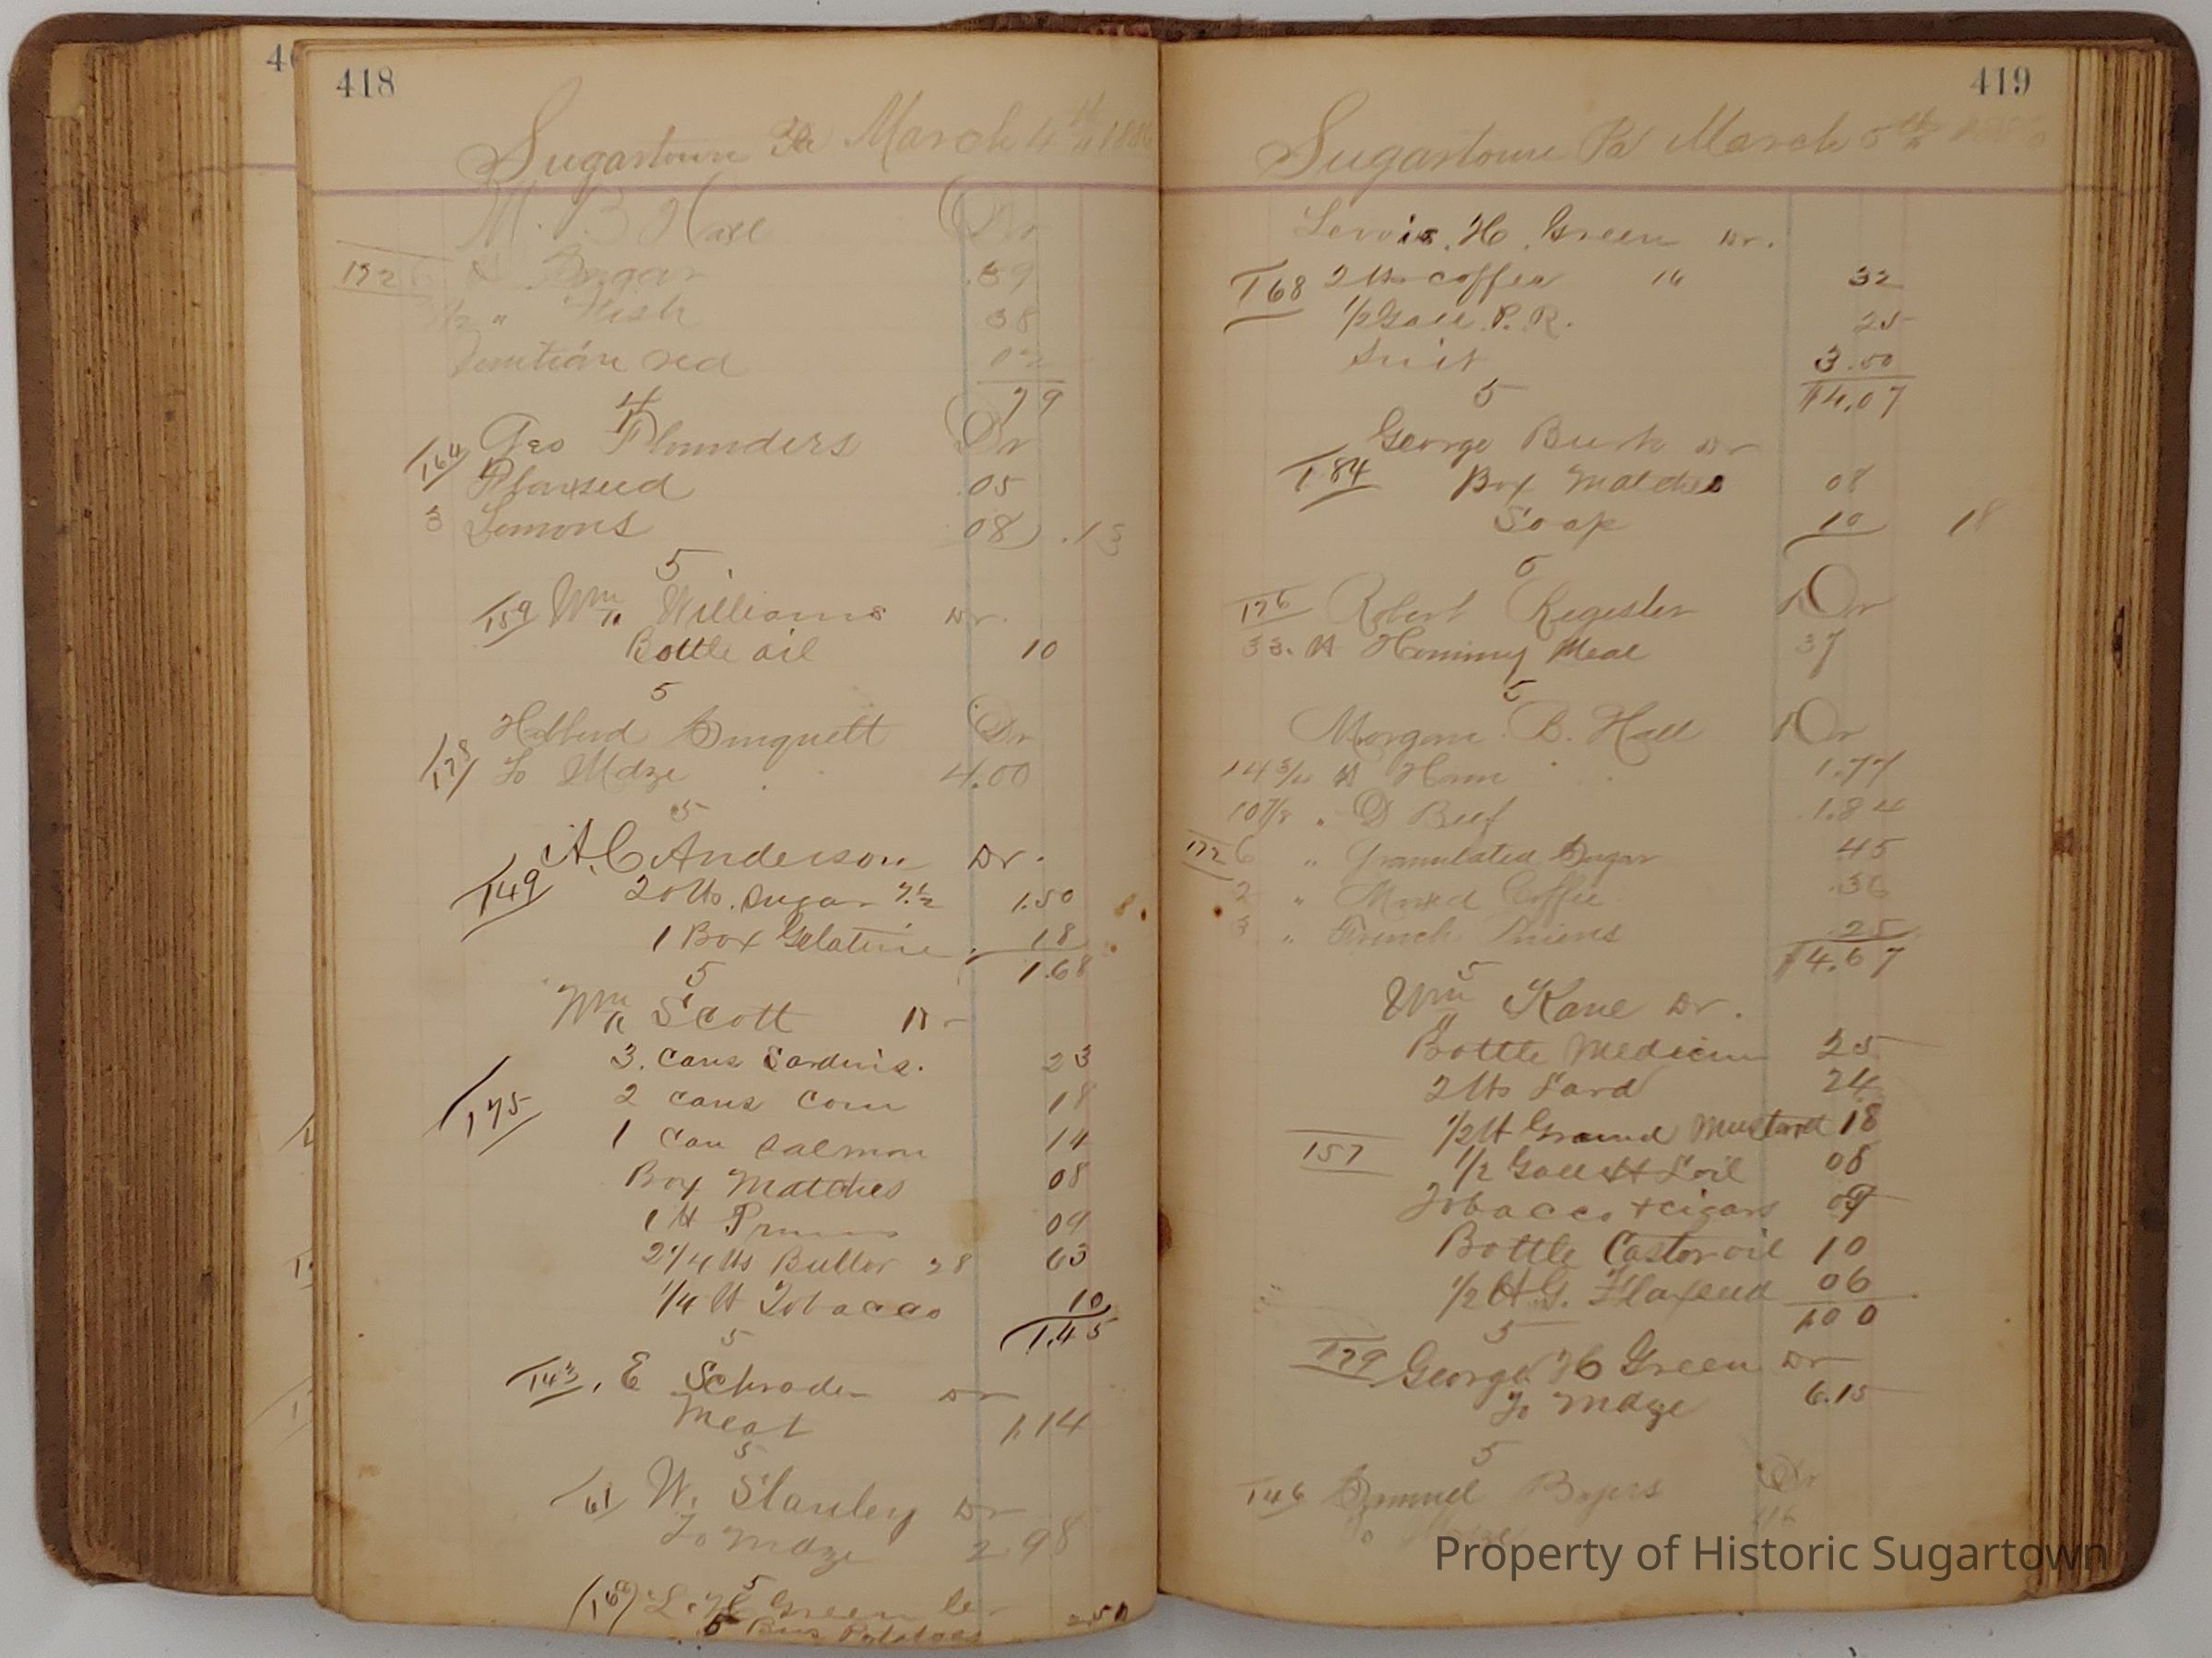 418
Sugartown Pa March 4th 188
M. B. Hall Dr
172 6 " Sugar .39
" Fish 38
Venitian red 02
79
4
164 Geo Flounders Dr
Flaxseed .05
3 Lemons 08) .13
5
159 Wm Williams Dr.
Bottle oil 10
5
Dr
178 To Mdze 4.00
5
A. C. Anderson Dr.
149 20 lbs. Sugar 7 1/2 1.50
1 Box Gelatine 18
1.68
5
Wm Scott Dr
3. cans Sardins. 23
175 2 cans Corn 18
1 Can Salmon 14
Box Matches 08
1 lb Pruns 09
2 1/4 lbs Butter 28 63
1/4 lb Tobacco 10
1.45
5
143 . E Schrader Dr
Meat 1.14
5
61 W. Stanley Dr
To Mdze 2 98
5
(168) L. H. Green Cr
5 Bus Potatoes 2.50
419
Sugartown Pa March 5th
Lewis. H. Green Dr.
168 2 lbs coffee 16 32
1/2 Gall. P. R. 25
Suit 3.50
$4.07
5
George Burk Dr
184 Box Matches 08
Soap 10 18
5
176 Robert Regester Dr
33. lb Hominy Meal 37
5
Morgan B. Hall Dr
14 3/4 lb Ham 1.77
10 7/8 " D Beef 1.84
172 6 " Granulated Sugar 45
2 " Mixed Coffee .36
3 " French Prunes .25
$4.67
5
Wm Kane Dr.
Bottle Medicine 25
2 lbs Lard 24
1/2 lb Ground Mustard 18
157 1/2 Gall H L oil 08
Tobacco + cigars 09
Bottle Castor oil 10
1/2 lb G. Flaxseed 06
1.00
5
179 George H Green Dr
To Mdze 6.15
5
146 Samuel Byers Dr
Property of Historic Sugartown